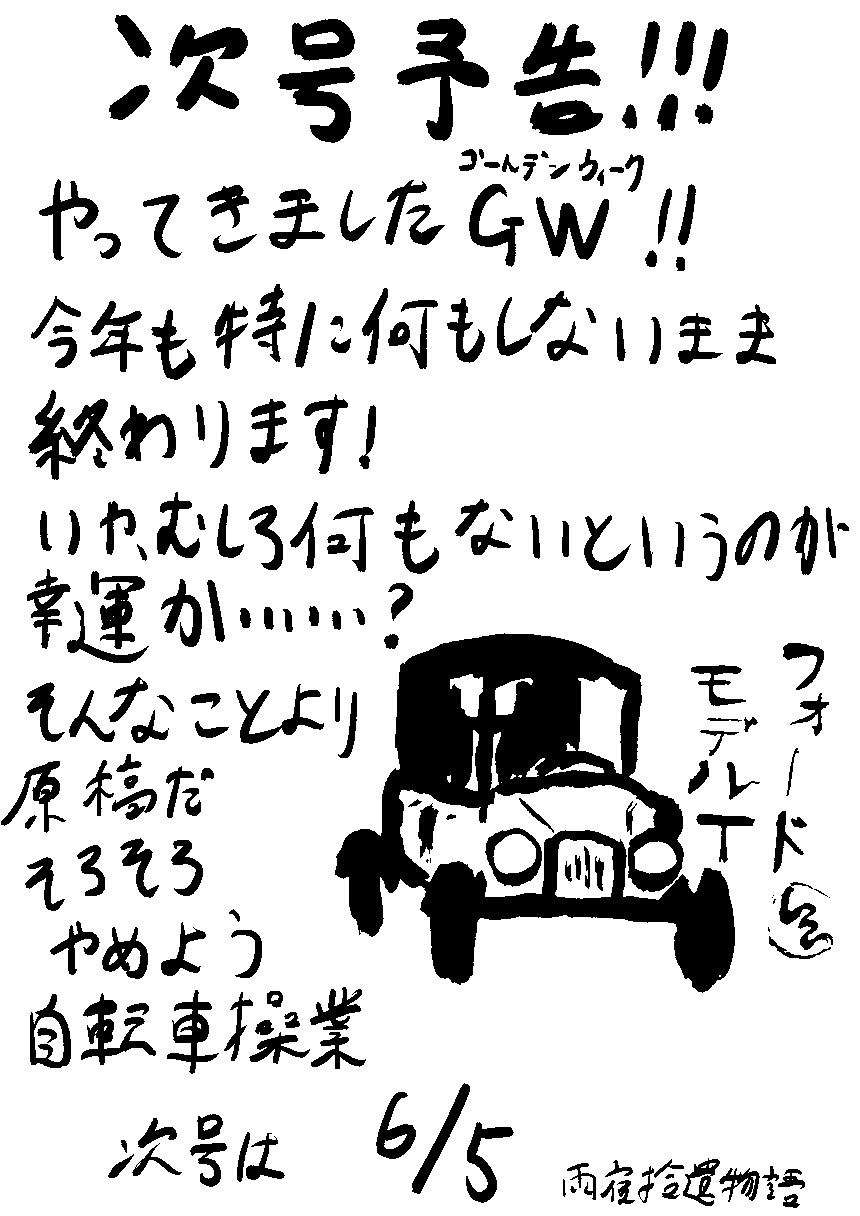 次号予告!!!
ゴールデンウィーク
やってきましたGW!!
今年も特に何もしないまま
終わります!
いや、むしろ何もないというのが
幸運か……?
そんなことより
原稿だ
そろそろ
やめよう
自転車操業
フォード
モデルT
次号は 6/5
雨宿拾遺物語